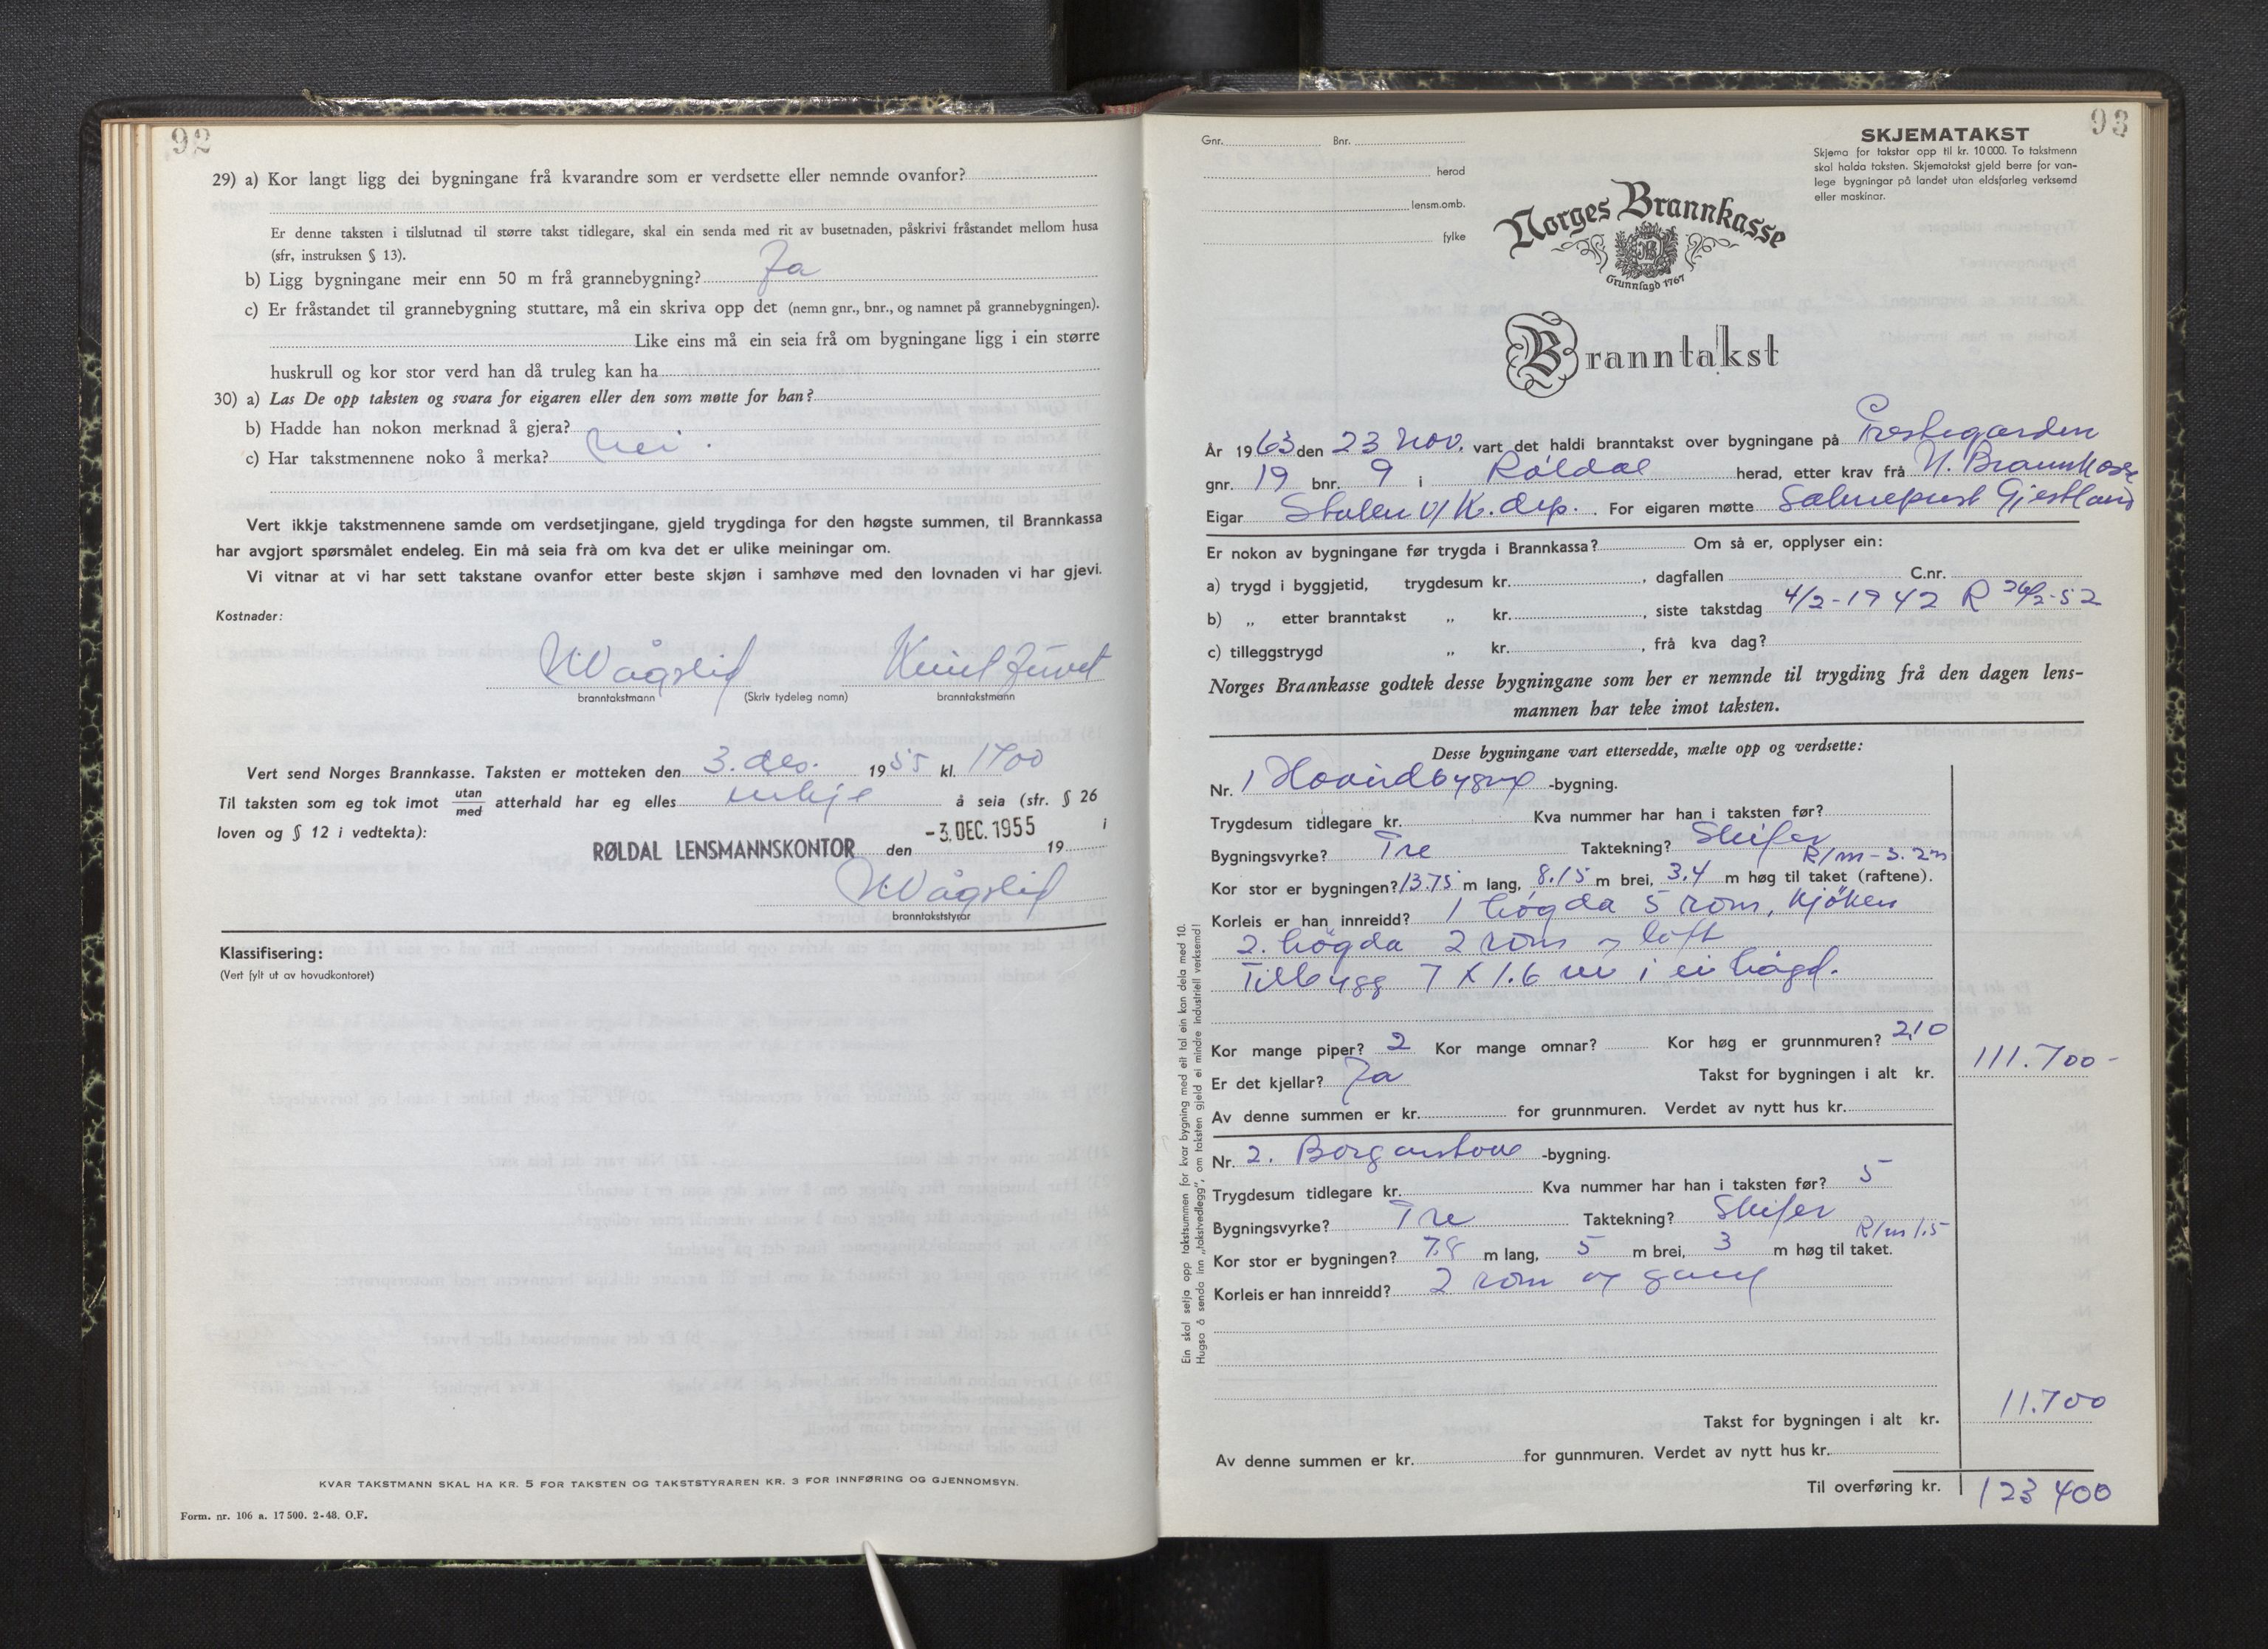 92
29) a) Kor langt ligg dei bygningane frå kvarandre som er verdsette eller nemnde ovanfor?
Er denne taksten i tilslutnad til større takst tidlegare, skal ein senda med rit av busetnaden, påskrivi fråstandet mellom husa
(sfr, instruksen § 13).
b) Ligg bygningane meir enn 50 m frå grannebygning? Ja
c) Er fråstandet til grannebygning stuttare, må ein skriva opp det (nemn gnr., bnr., og namnet på grannebygningen).
Like eins må ein seia frå om bygningane ligg i ein større
huskrull og kor stor verd han då truleg kan ha
30) a) Las De opp taksten og svara for eigaren eller den som møtte for han?
b) Hadde han nokon merknad å gjera?
c) Har takstmennene noko å merka? Nei.
Vert ikkje takstmennene samde om verdsetjingane, gjeld trygdinga for den høgste summen, til Brannkassa
har avgjort spørsmålet endeleg. Ein må seia frå om kva det er ulike meiningar om.
Vi vitnar at vi har sett takstane ovanfor etter beste skjøn i samhøve med den lovnaden vi har gjevi.
Kostnader:
Vågslid Knut Juvet
branntakstmann (Skriv tydeleg namn) branntakstmann
Vert send Norges Brannkasse. Taksten er motteken den 3. des. 1955 kl. 1700
Til taksten som eg tok imot utan/med atterhald har eg elles inkje å seia (sfr. § 26
loven og § 12 i vedtekta): i
RØLDAL LENSMANNSKONTOR den -3. DEC. 1955 19
Vågslid
branntakststyrar
Klassifisering:
(Vert fylt ut av hovudkontoret)
KVAR TAKSTMANN SKAL HA KR. 5 FOR TAKSTEN OG TAKSTSTYRAREN KR. 3 FOR INNFØRING OG GJENNOMSYN.
Form. nr. 106 a. 17 500. 2-48. O.F.
93
Gnr. Bnr.
herad
lensm.omb.
fylke
SKJEMATAKST
Skjema for takstar opp til kr. 10 000. To takstmenn
skal halda taksten. Skjematakst gjeld berre for van-
lege bygningar på landet utan eldsfarleg verksemd
eller maskinar.
Norges Brannkasse
Grunnlagd 1767
Branntakst
År 1963 den 23 Nov. vart det haldi branntakst over bygningane på Prestegarden
gnr. 19 bnr. 9 i Røldal herad, etter krav frå N. Brannkasse
Eigar Staten v/ K. dep. For eigaren møtte Sokneprest Gjestland
Er nokon av bygningane før trygda i Brannkassa? Om så er, opplyser ein:
a) trygd i byggjetid, trygdesum kr. , dagfallen C.nr.
b) „ etter branntakst „ kr. , siste takstdag 4/2-1942 R 26/2-52
c) tilleggstrygd „ kr. , frå kva dag?
Norges Braankasse godtek desse bygningane som her er nemnde til trygding frå den dagen lens-
mannen har teke imot taksten.
Desse bygningane vart ettersedde, mælte opp og verdsette:
Nr. 1 Hovudbygng -bygning.
Trygdesum tidlegare kr. Kva nummer har han i taksten før?
Bygningsvyrke? Tre Taktekning? Skifer
R/m - 3.2 m
Kor stor er bygningen? 13.75 m lang, 8.15 m brei, 3.4 m høg til taket (raftene).
Korleis er han innreidd? 1 høgda 5 rom, Kjøken
2. høgda 2 rom og loft
Tilbygg 7 x 1.6 m i ei høgd.
Kor mange piper? 2 Kor mange omnar? Kor høg er grunnmuren? 2,10
Er det kjellar? Ja Takst for bygningen i alt kr. 111.700-
Av denne summen er kr. for grunnmuren. Verdet av nytt hus kr.
Nr. 2. Borgarstova -bygning.
Trygdesum tidlegare kr. Kva nummer har han i taksten før? 5
Bygningsvyrke? Tre Taktekning? Skifer
R/m 1.5
Kor stor er bygningen? 7.8 m lang, 5 m brei, 3 m høg til taket.
Korleis er han innreidd? 2 rom og gang
Takst for bygningen i alt kr. 11.700
Av denne summen er kr. for gunnmuren. Verdet av nytt hus kr.
Til overføring kr. 123 400
Ein skal setja opp takstsummen for kvar bygning med eit tal ein kan dela med 10.
Hugsa å senda inn „takstvedlegg“, om taksten gjeld ei mindre industriell verksemd!